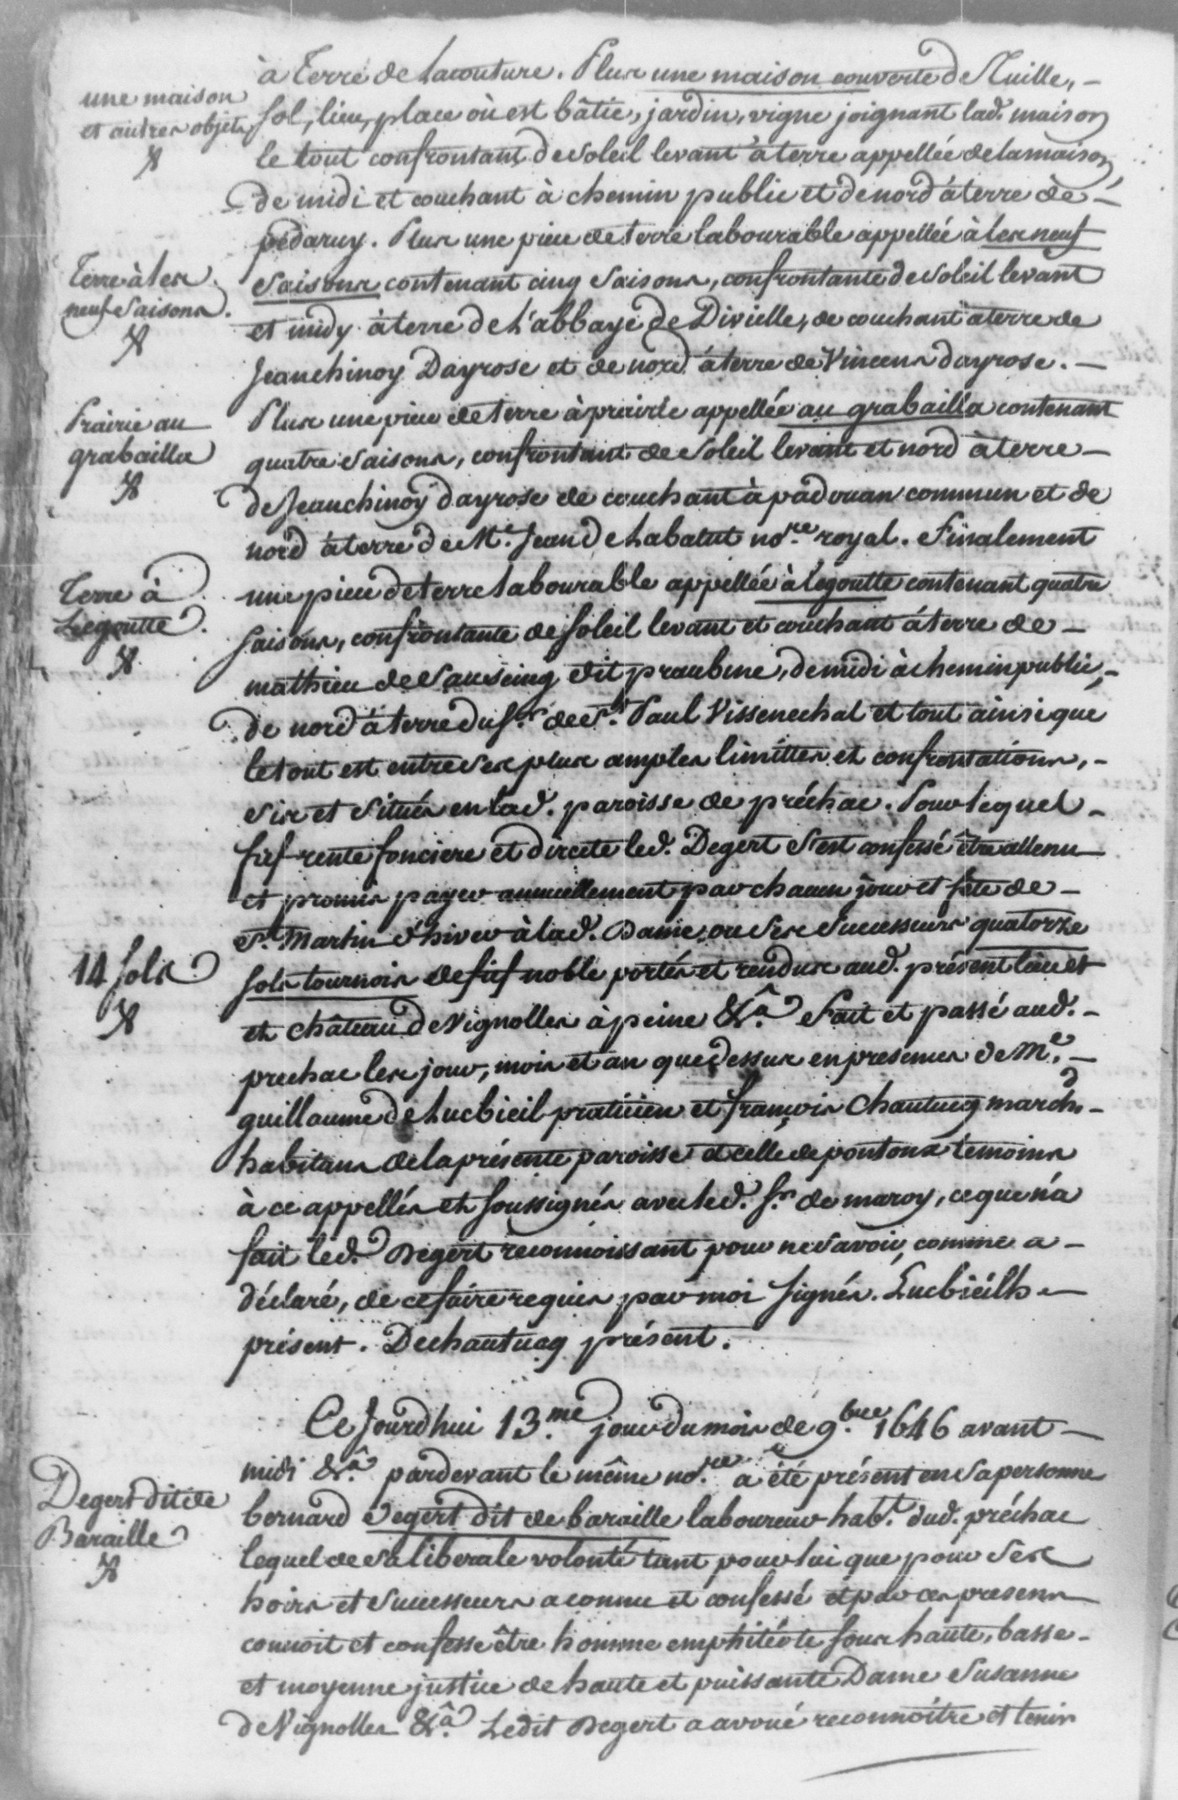 à Terre de Lacouture. Plus une maison couverte de Tuille, –
une maison
et autres objets
sol, lieu, place où est bâtie, jardin, vigne joignant lad. maison
le tout confrontant de soleil levant à terre appellée de lamaison,
de midi et couchant à chemin public et de nord à terre de –
pédaruy. Plus une piece de terre labourable appellée à les neuf
Terre à les
neuf saisons.
saisons contenant cinq saisons, confrontante de soleil levant
et midy à terre de L'abbaye de Divielle, de couchant à terre de
Jeanchinoy Dayrose et de nord à terre de Vincens dayrose. –
Prairie au
grabailla
Plus une piece de terre à prairie appellée au grabailla contenant
quatre saisons, confrontant de soleil levant et nord à terre –
de Jeanchinoy dayrose de couchant à padouan commun et de
nord à terre de Me. Jean de Labatut nore. royal. Finalement
Terre à
Legoutte.
une piece de terre labourable appellée à Legoutte contenant quatre
saisons, confrontante de soleil levant et couchant à terre de –
mathieu de Saussing dit praubine, de midi à chemin public, –
de nord à terre du sr. de St. Paul Vissenechal et tout ainsi que
le tout est entre ses plus amples limittes et confrontations, –
sis et situés en lad. paroisse de préchac. Pour lequel –
fief rente fonciere et directe led. Degert s'est confessé être attenu
et promis payer annuellement par chacun jour et fête de –
St. Martin d'hiver à lad. Dame, ou ses successeurs quatorze
14 sols
sols tournois de fief noble portés et rendus aud. présent lieu et
et château de Vignolles à peine &ca. Fait et passé aud. –
prechac les jour, mois et an que dessus en presences de Me. –
guillaume de Lucbieil pratiiien et françois Chautucq marchd –
habitans de la présente paroisse et celle de pontoux temoins
à ce appellés et soussignés avec led. sr. de maroy, ce que n'a
fait led. Degert reconnoissant pour ne savoir, comme a –
déclaré, de ce faire requis par moi signés. Lucbiéilh –
présent. Dechautucq présent.
Ce Jourd'hui 13.me jour du mois de 9.bre 1646 avant –
midi &ca. pardevant le même nore. a été présent en sa personne
Degert dit de
Baraille
bernard Degert dit de baraille laboureur habt. dud. préchac
lequel de sa liberale volonté tant pour lui que pour ses
hoirs et successeurs a connu et confessé et par ces presens
connoit et confesse être homme emphitéote sous haute, basse –
et moyenne justice de haute et puissante Dame Susanne
de Vignolles &ca. Ledit Degert a avoué reconnoître et tenir